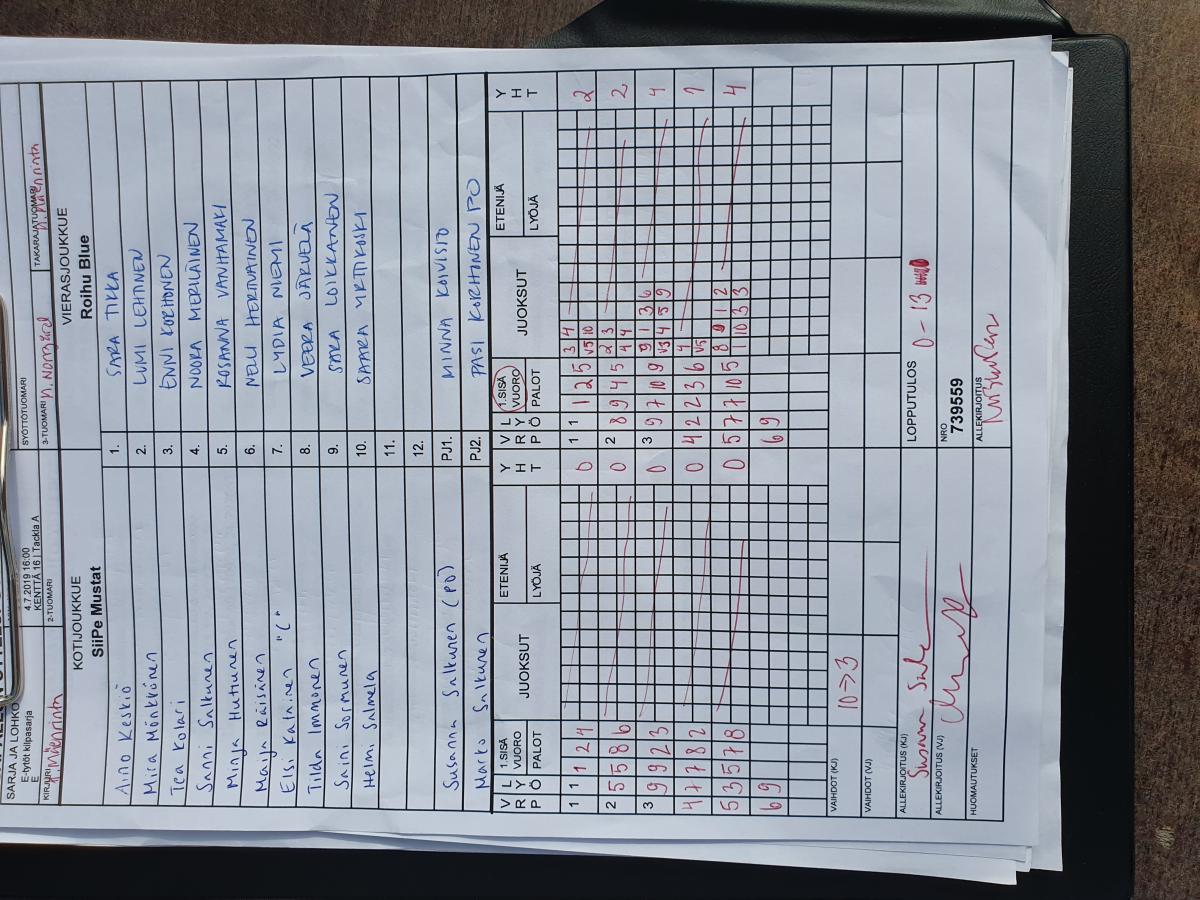 SARJA JA LOHKO
E-tytöt kilpasarja
E
4.7.2019 16:00
KENTTÄ 16 | Tackla A
SYÖTTÖTUOMARI
KIRJURI
2-TUOMARI
3-TUOMARI
TAKARAJATUOMARI
KOTIJOUKKUE
SiiPe Mustat
VIERASJOUKKUE
Roihu Blue
Aino Keskiö 1. SARA TIKKA
Miira Mönkkönen 2. LUMI LEHTINEN
Tea Kolari 3. ENNI KORHONEN
Sanni Salkunen 4. NOORA MERILÄINEN
Minja Hutiunen 5. ROSANNA VANHAMÄKI
Maija Räisänen 6. NELLI
Elsi Katainen "C" 7. LYDIA NIEMI
Tilda Immonen 8. VEERA JÄRVELÄ
Saini Sormunen 9. SARA LOIKKANEN
Helmi Salmela 10. SAARA
11.
12.
Susanna Salkunen (PO) PJ1. MINNA KOIVISTO
Marko Salkunen PJ2. PASI KORHONEN PO
V R P L Y Ö 1.SISÄ VUORO PALOT JUOKSUT ETENIJÄ LYÖJÄ Y H T V R P L Y Ö 1.SISÄ VUORO PALOT JUOKSUT ETENIJÄ LYÖJÄ Y H T
1 1 1 2 4 0 1 1 1 2 5 3 4 v5 10 2
2 5 5 8 6 0 2 8 9 4 5 2 3 4 4 2
3 9 9 2 3 0 3 9 7 10 9 9 1 3 6 v3 4 5 9 4
4 7 7 8 2 0 4 2 2 3 6 4 v5 1
5 3 5 7 8 0 5 7 7 10 5 8 9 1 2 1 10 3 3 4
6 9 6 9
VAIHDOT (KJ) 10→3
VAIHDOT (VJ)
ALLEKIRJOITUS (KJ)
LOPPUTULOS 0-13
ALLEKIRJOITUS (VJ)
NRO
739559
HUOMAUTUKSET
ALLEKIRJOITUS